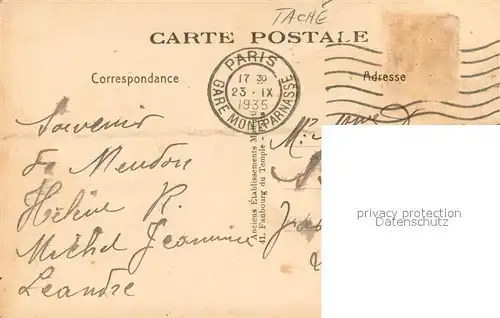 TACHÉ
CARTE POSTALE
Correspondance
Adresse
PARIS
17 30
23 · IX
1935
GARE MONTPARNASSE
Souvenir
de Meudon
Hélène R.
Michel Jeannine
Leandre
Anciens Établissements
41, Faubourg du Temple
privacy protection
Datenschutz